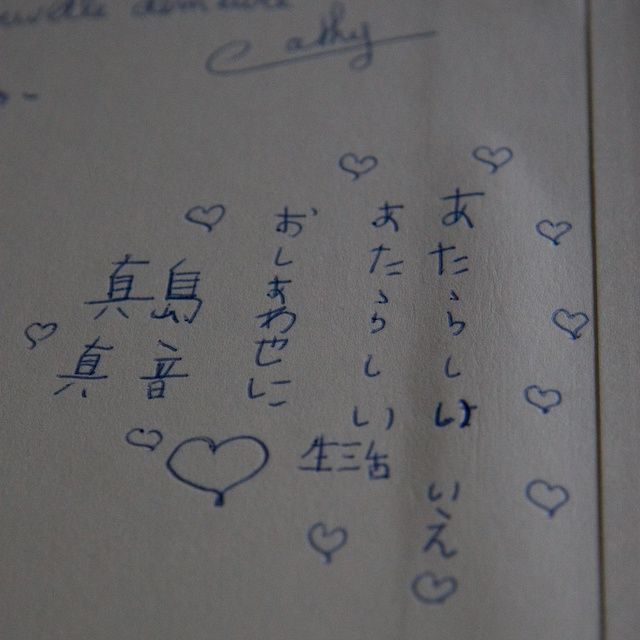 uvelle demeure
Cathy
あたらしい いえ
あたらしい 生活
おしあわせに
真島
真音